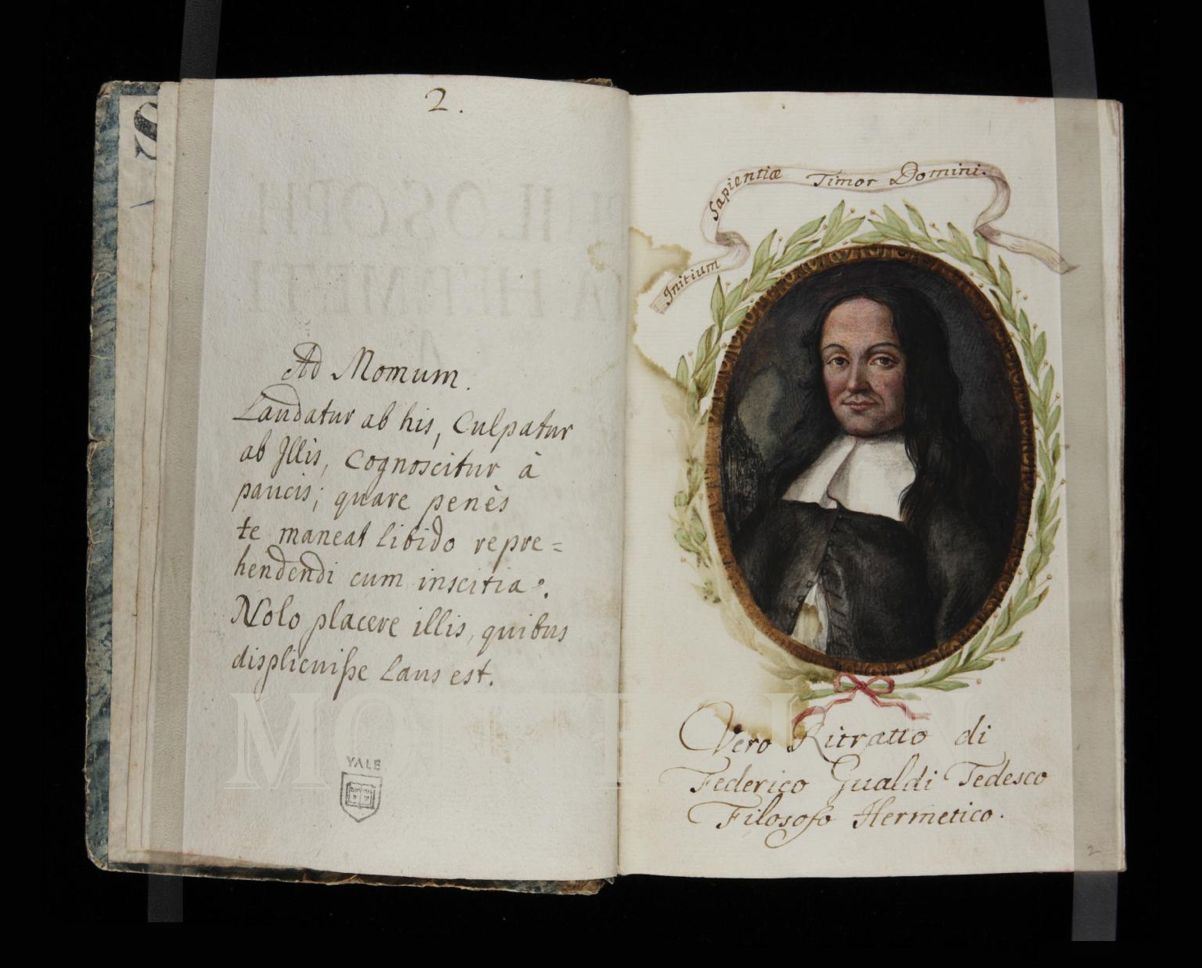 2.
PHILOSOPH
IA HERMETI
Ad Momum.
Laudatur ab his, Culpatur
ab Illis, Cognoscitur à
paucis; quare penès
te maneat libido repre=
hendendi cum inscitia.
Nolo placere illis, quibus
displicuiſse Laus est.
YALE
Initium Sapientiæ Timor Domini.
Vero Ritratto di
Federico Gualdi Tedesco
Filosofo Hermetico.
2